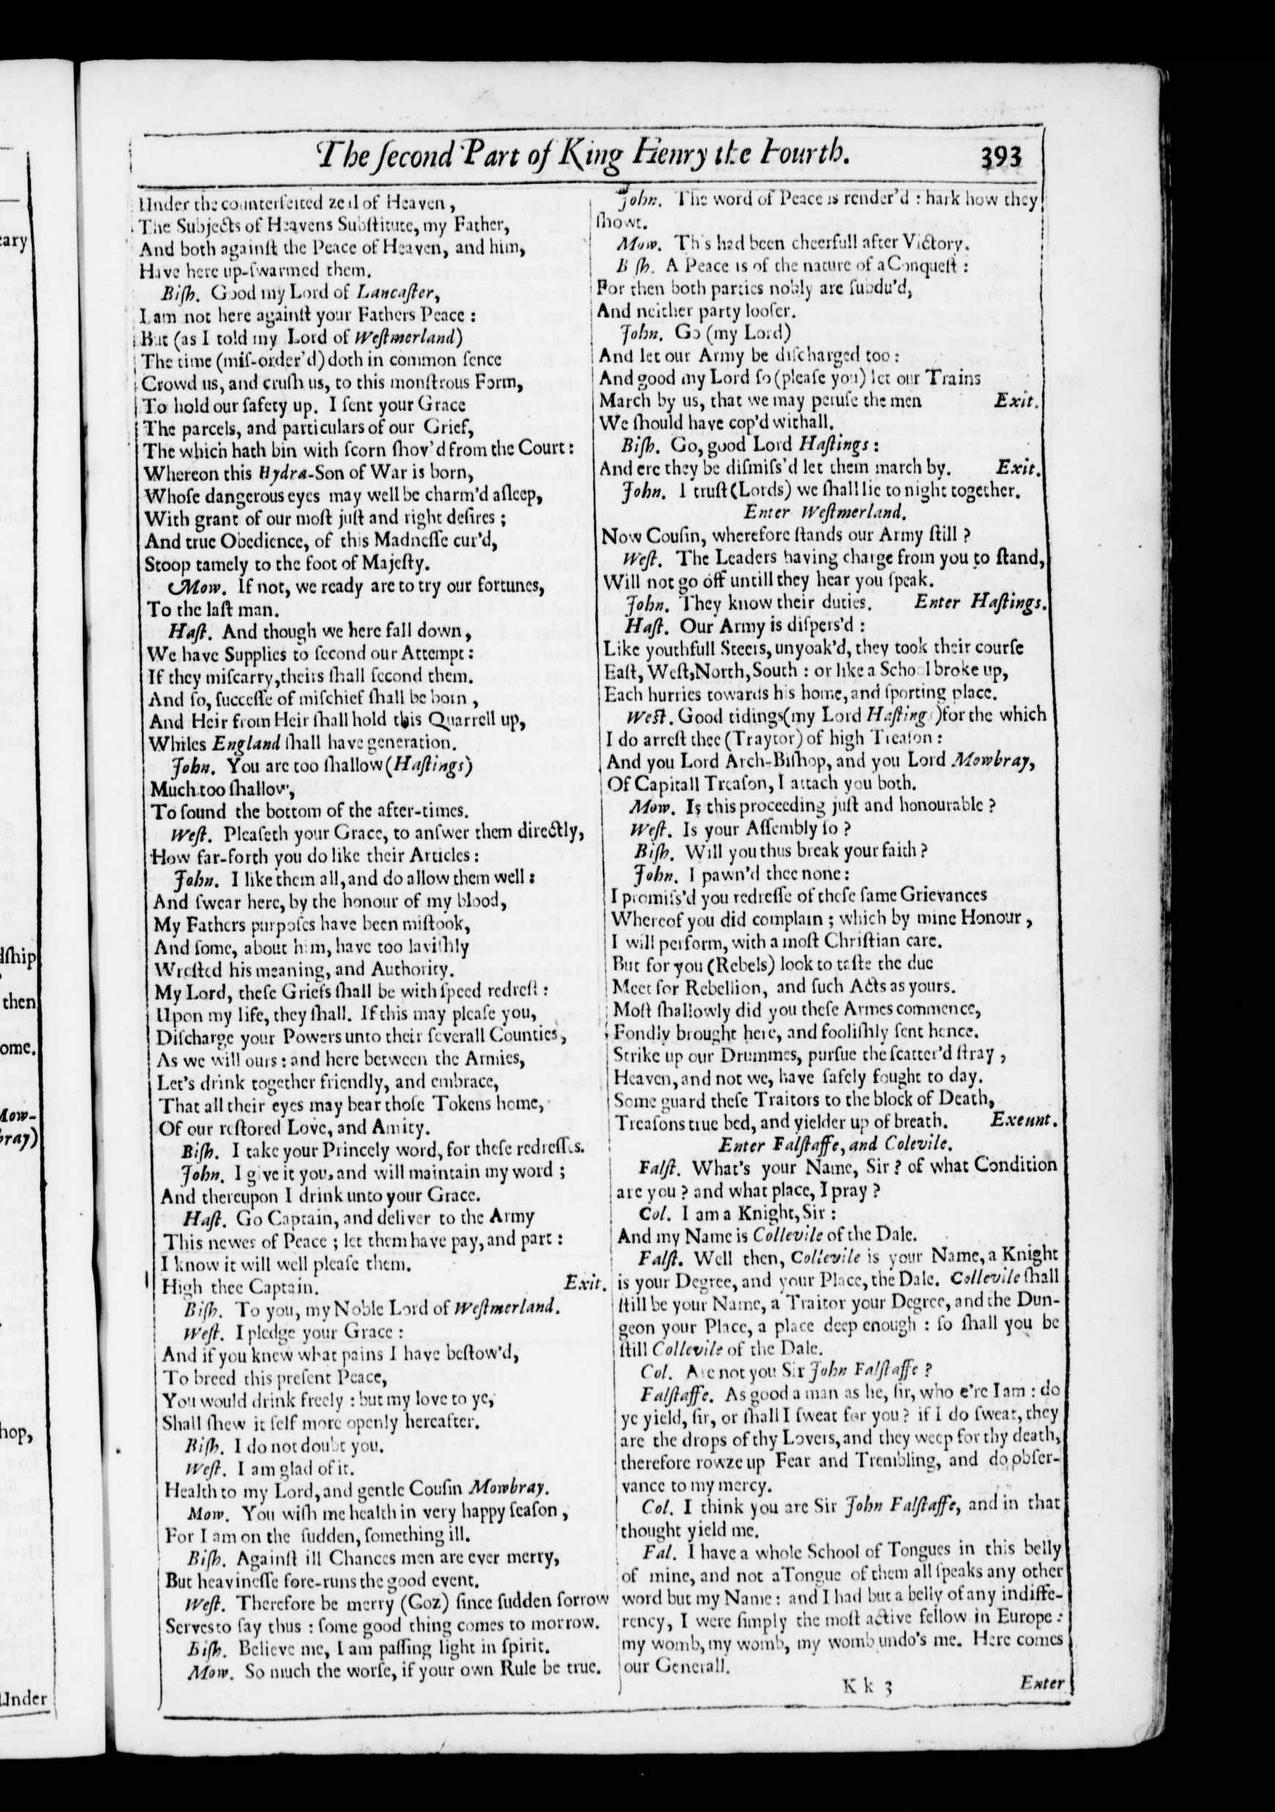 The ſecond Part of King Henry the Fourth. 393
Under the counterfeited zeal of Heaven,
The Subjects of Heavens Subſtitute, my Father,
And both againſt the Peace of Heaven, and him,
Have here up-ſwarmed them.
Biſh. Good my Lord of Lancaſter,
I am not here againſt your Fathers Peace:
But (as I told my Lord of Weſtmerland)
The time (miſ-order'd) doth in common ſence
Crowd us, and cruſh us, to this monſtrous Form,
To hold our ſafety up. I ſent your Grace
The parcels, and particulars of our Grief,
The which hath bin with ſcorn ſhov'd from the Court:
Whereon this Hydra-Son of War is born,
Whoſe dangerous eyes may well be charm'd aſleep,
With grant of our moſt juſt and right deſires;
And true Obedience, of this Madneſſe cur'd,
Stoop tamely to the foot of Majeſty.
Mow. If not, we ready are to try our fortunes,
To the laſt man.
Haſt. And though we here fall down,
We have Supplies to ſecond our Attempt:
If they miſcarry, theirs ſhall ſecond them.
And ſo, ſucceſſe of miſchief ſhall be born,
And Heir from Heir ſhall hold this Quarrell up,
Whiles England ſhall have generation.
John. You are too ſhallow (Haſtings)
Much too ſhallow,
To ſound the bottom of the after-times.
Weſt. Pleaſeth your Grace, to anſwer them directly,
How far-forth you do like their Articles:
John. I like them all, and do allow them well:
And ſwear here, by the honour of my blood,
My Fathers purpoſes have been miſtook,
And ſome, about him, have too laviſhly
Wreſted his meaning, and Authority.
My Lord, theſe Griefs ſhall be with ſpeed redreſt:
Upon my life, they ſhall. If this may pleaſe you,
Diſcharge your Powers unto their ſeverall Counties,
As we will ours: and here between the Armies,
Let's drink together friendly, and embrace,
That all their eyes may bear thoſe Tokens home,
Of our reſtored Love, and Amity.
Biſh. I take your Princely word, for theſe redreſſes.
John. I give it you, and will maintain my word;
And thereupon I drink unto your Grace.
Haſt. Go Captain, and deliver to the Army
This newes of Peace; let them have pay, and part:
I know it will well pleaſe them.
High thee Captain. Exit.
Biſh. To you, my Noble Lord of Weſtmerland.
Weſt. I pledge your Grace:
And if you knew what pains I have beſtow'd,
To breed this preſent Peace,
You would drink freely: but my love to ye,
Shall ſhew it ſelf more openly hereafter.
Biſh. I do not doubt you.
Weſt. I am glad of it.
Health to my Lord, and gentle Couſin Mowbray.
Mow. You wiſh me health in very happy ſeaſon,
For I am on the ſudden, ſomething ill.
Biſh. Againſt ill Chances men are ever merry,
But heavineſſe fore-runs the good event.
Weſt. Therefore be merry (Coz) ſince ſudden ſorrow
Serves to ſay thus: ſome good thing comes to morrow.
Biſh. Believe me, I am paſſing light in ſpirit.
Mow. So much the worſe, if your own Rule be true.
John. The word of Peace is render'd: hark how they
ſhowt.
Mow. This had been cheerfull after Victory.
Biſh. A Peace is of the nature of a Conqueſt:
For then both parties nobly are ſubdu'd,
And neither party looſer.
John. Go (my Lord)
And let our Army be diſcharged too:
And good my Lord ſo (pleaſe you) let our Trains
March by us, that we may peruſe the men Exit.
We ſhould have cop'd withall.
Biſh. Go, good Lord Haſtings:
And ere they be diſmiſs'd let them march by. Exit.
John. I truſt (Lords) we ſhall lie to night together.
Enter Weſtmerland.
Now Couſin, wherefore ſtands our Army ſtill?
Weſt. The Leaders having charge from you to ſtand,
Will not go off untill they hear you ſpeak.
John. They know their duties. Enter Haſtings.
Haſt. Our Army is diſpers'd:
Like youthfull Steers, unyoak'd, they took their courſe
Eaſt, Weſt, North, South: or like a School broke up,
Each hurries towards his home, and ſporting place.
Weſt. Good tidings (my Lord Haſtings) for the which
I do arreſt thee (Traytor) of high Treaſon:
And you Lord Arch-Biſhop, and you Lord Mowbray,
Of Capitall Treaſon, I attach you both.
Mow. Is this proceeding juſt and honourable?
Weſt. Is your Aſſembly ſo?
Biſh. Will you thus break your faith?
John. I pawn'd thee none:
I promiſs'd you redreſſe of theſe ſame Grievances
Whereof you did complain; which by mine Honour,
I will perform, with a moſt Chriſtian care.
But for you (Rebels) look to taſte the due
Meet for Rebellion, and ſuch Acts as yours.
Moſt ſhallowly did you theſe Armes commence,
Fondly brought here, and fooliſhly ſent hence.
Strike up our Drummes, purſue the ſcatter'd ſtray,
Heaven, and not we, have ſafely fought to day.
Some guard theſe Traitors to the block of Death,
Treaſons true bed, and yielder up of breath. Exeunt.
Enter Falſtaffe, and Colevile.
Falſt. What's your Name, Sir? of what Condition
are you? and what place, I pray?
Col. I am a Knight, Sir:
And my Name is Collevile of the Dale.
Falſt. Well then, Collevile is your Name, a Knight
is your Degree, and your Place, the Dale. Collevile ſhall
ſtill be your Name, a Traitor your Degree, and the Dun-
geon your Place, a place deep enough: ſo ſhall you be
ſtill Collevile of the Dale.
Col. Are not you Sir John Falſtaffe?
Falſtaffe. As good a man as he, ſir, who e're I am: do
ye yield, ſir, or ſhall I ſweat for you? if I do ſweat, they
are the drops of thy Lovers, and they weep for thy death,
therefore rowze up Fear and Trembling, and do obſer-
vance to my mercy.
Col. I think you are Sir John Falſtaffe, and in that
thought yield me.
Fal. I have a whole School of Tongues in this belly
of mine, and not a Tongue of them all ſpeaks any other
word but my Name: and I had but a belly of any indiffe-
rency, I were ſimply the moſt active fellow in Europe:
my womb, my womb, my womb undo's me. Here comes
our Generall.
K k 3 Enter